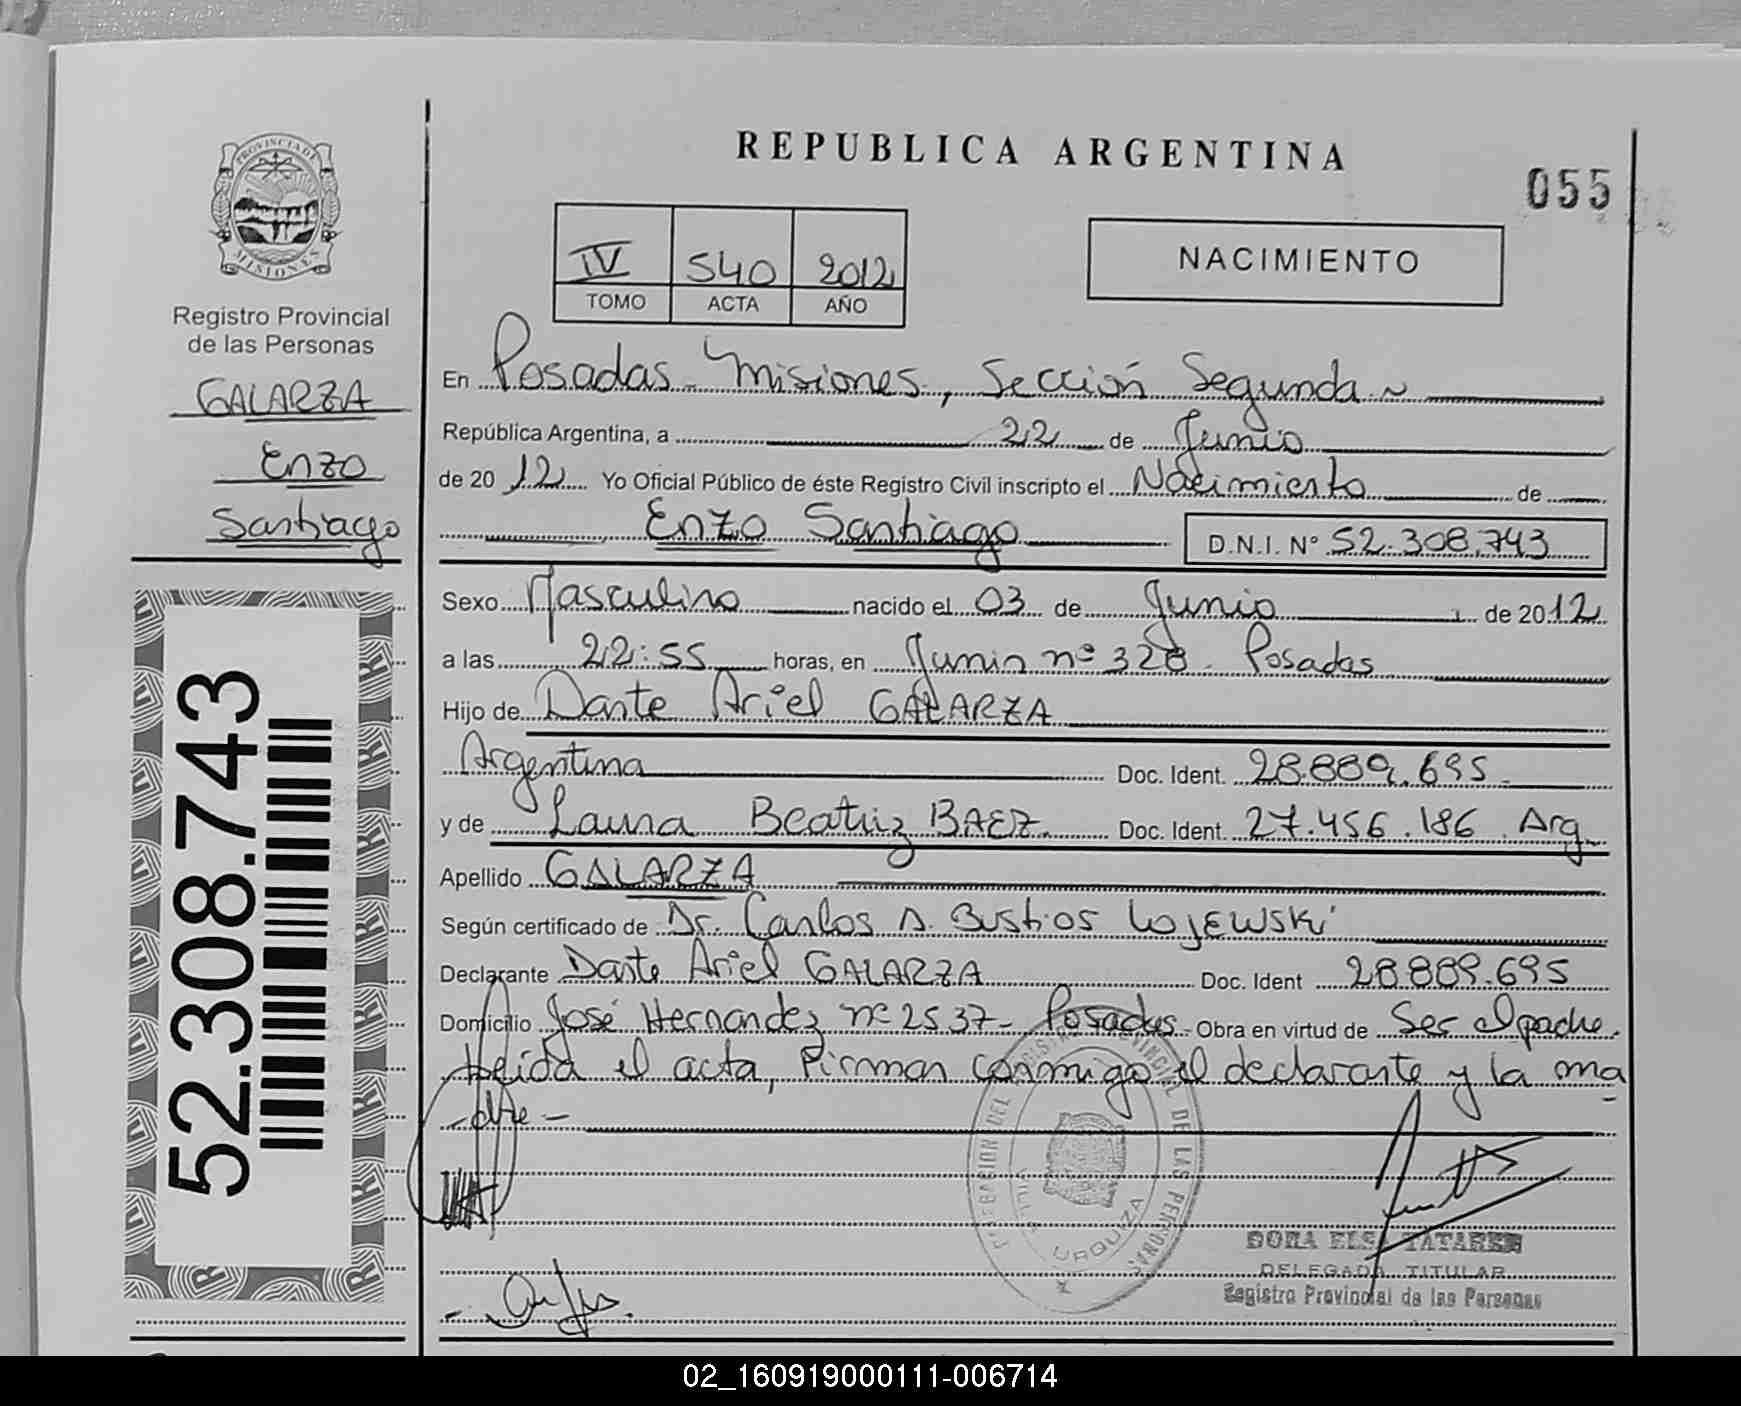 REPUBLICA ARGENTINA
055
PROVINCIA DE
MISIONES
Registro Provincial
de las Personas
GALARZA
Enzo
Santiago
52.308.743
IV 540 2012
TOMO ACTA AÑO
NACIMIENTO
En Posadas - Misiones, Sección Segunda
República Argentina, a 22 de Junio
de 2012 Yo Oficial Público de éste Registro Civil inscripto el Nacimiento de
Enzo Santiago D.N.I. N° 52.308.743
Sexo Masculino nacido el 03 de Junio de 2012
a las 22:55 horas, en Junin nº 328 - Posadas
Hijo de Dante Ariel GALARZA
Argentina Doc. Ident. 28.889.695
y de Laura Beatriz BAEZ Doc. Ident. 27.456.186 Arg.
Apellido GALARZA
Según certificado de Dr. Carlos A. Bustios Lojewski
Declarante Dante Ariel GALARZA Doc. Ident 28.889.695
Domicilio José Hernandez nº 2537 - Posadas - Obra en virtud de Ser el padre.
Leida el acta, Firman conmigo el declarante y la ma
-dre-
PROVINCIAL DE LAS PERSONAS
VILLA URQUIZA
DORA ELSA TATAREN
DELEGADA TITULAR
Registro Provincial de las Personas
02_160919000111-006714